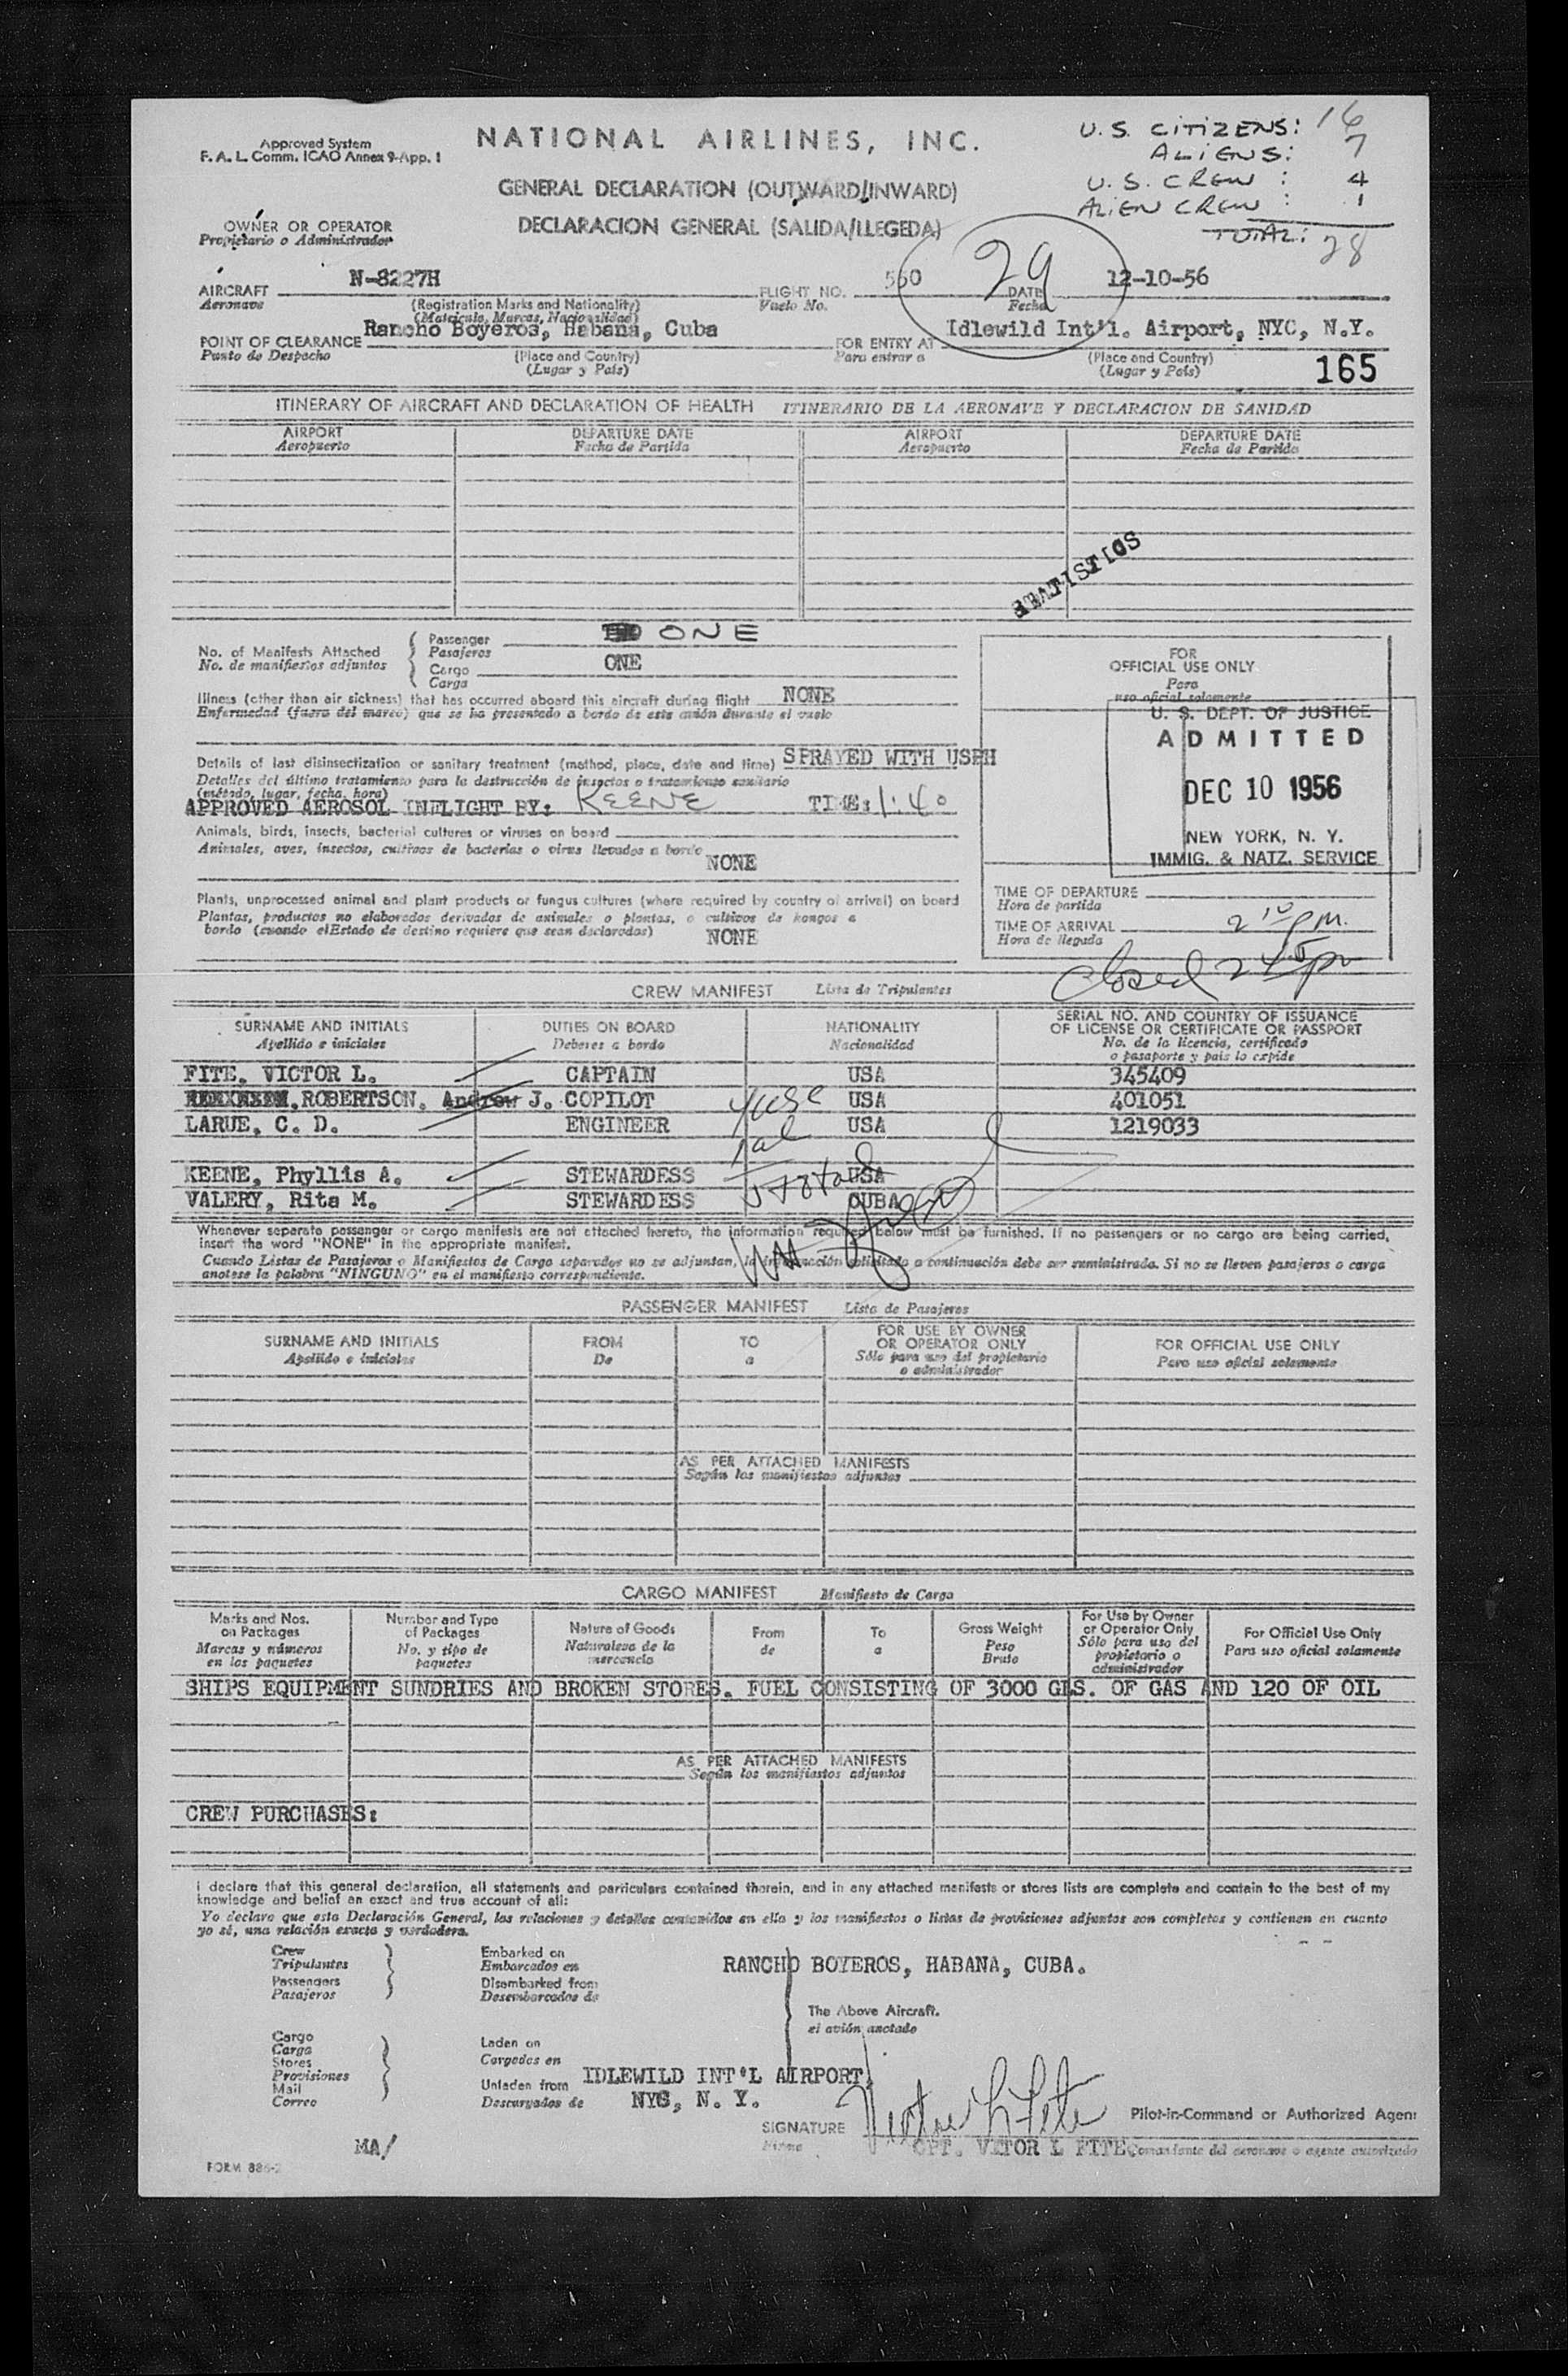 Approved System
F. A. L. Comm. ICAO Annex 9-App. 1
NATIONAL AIRLINES, INC.
GENERAL DECLARATION (OUTWARD/INWARD)
DECLARACION GENERAL (SALIDA/LLEGEDA)
U.S. CITIZENS: 16
ALIENS: 7
U.S. CREW : 4
ALIEN CREW : 1
TOTAL: 28
OWNER OR OPERATOR
Propietario o Administrador
29
AIRCRAFT N-8227H FLIGHT NO. 550 DATE 12-10-56
Aeronave (Registration Marks and Nationality) Vuelo No. Fecha
(Matricula, Marcas, Nacionalidad)
POINT OF CLEARANCE Rancho Boyeros, Habana, Cuba FOR ENTRY AT Idlewild Int'l. Airport, NYC, N.Y.
Punto de Despacho (Place and Country) Para entrar a (Place and Country)
(Lugar y País) (Lugar y País)
165
ITINERARY OF AIRCRAFT AND DECLARATION OF HEALTH ITINERARIO DE LA AERONAVE Y DECLARACION DE SANIDAD
AIRPORT DEPARTURE DATE AIRPORT DEPARTURE DATE
Aeropuerto Fecha de Partida Aeropuerto Fecha de Partida
STATISTICS
No. of Manifests Attached
No. de manifiestos adjuntos
Passenger ONE
Pasajeros
Cargo ONE
Carga
Illness (other than air sickness) that has occurred aboard this aircraft during flight NONE
Enfermedad (fuera del mareo) que se ha presentado a bordo de este avión durante el vuelo
Details of last disinsectization or sanitary treatment (method, place, date and time) SPRAYED WITH USPH
Detalles del último tratamiento para la destrucción de insectos o tratamiento sanitario
(método, lugar, fecha, hora)
APPROVED AEROSOL INFLIGHT BY: KEENE TIME: 1:40
Animals, birds, insects, bacterial cultures or viruses on board
Animales, aves, insectos, cultivos de bacterias o virus llevados a bordo
NONE
Plants, unprocessed animal and plant products or fungus cultures (where required by country of arrival) on board
Plantas, productos no elaborados derivados de animales o plantas, o cultivos de hongos a
bordo (cuando elEstado de destino requiere que sean declarados) NONE
FOR
OFFICIAL USE ONLY
Para
uso oficial solamente
U. S. DEPT. OF JUSTICE
ADMITTED
DEC 10 1956
NEW YORK, N. Y.
IMMIG. & NATZ. SERVICE
TIME OF DEPARTURE
Hora de partida
TIME OF ARRIVAL 2 10 PM.
Hora de llegada
Closed 2 45 pm
CREW MANIFEST Lista de Tripulantes
SURNAME AND INITIALS DUTIES ON BOARD NATIONALITY SERIAL NO. AND COUNTRY OF ISSUANCE
OF LICENSE OR CERTIFICATE OR PASSPORT
Apellido e iniciales Deberes a bordo Nacionalidad No. de la licencia, certificado
o pasaporte y pais lo expide
FITE, VICTOR L. CAPTAIN USA 345409
ROBERTSON, Andrew J. COPILOT USA 401051
LARUE, C. D. ENGINEER USA 1219033
KEENE, Phyllis A. STEWARDESS USA
VALERY, Rita M. STEWARDESS CUBA
4 usc
1 al
5 total
Whenever separate passenger or cargo manifests are not attached hereto, the information required below must be furnished. If no passengers or no cargo are being carried,
insert the word "NONE" in the appropriate manifest.
Cuando Listas de Pasajeros o Manifiestos de Cargo separados no se adjuntan, la información solicitada a continuación debe ser suministrada. Si no se lleven pasajeros o carga
anotese la palabra "NINGUNO" en el manifiesto correspondiente.
PASSENGER MANIFEST Lista de Pasajeros
SURNAME AND INITIALS FROM TO FOR USE BY OWNER OR OPERATOR ONLY FOR OFFICIAL USE ONLY
Apellido e iniciales De a Sólo para uso del propietario o administrador Para uso oficial solamente
AS PER ATTACHED MANIFESTS
Según los manifiestos adjuntos
CARGO MANIFEST Manifiesto de Carga
Marks and Nos. on Packages Number and Type of Packages Nature of Goods From To Gross Weight For Use by Owner or Operator Only For Official Use Only
Marcas y números en los paquetes No. y tipo de paquetes Naturaleza de la mercancía de a Peso Bruto Sólo para uso del propietario o administrador Para uso oficial solamente
SHIPS EQUIPMENT SUNDRIES AND BROKEN STORES. FUEL CONSISTING OF 3000 GLS. OF GAS AND 120 OF OIL
AS PER ATTACHED MANIFESTS
Según los manifiestos adjuntos
CREW PURCHASES:
I declare that this general declaration, all statements and particulars contained therein, and in any attached manifests or stores lists are complete and contain to the best of my
knowledge and belief an exact and true account of all:
Yo declaro que esta Declaración General, las relaciones y detalles contenidos en ella y los manifiestos o listas de provisiones adjuntos son completos y contienen en cuanto
yo sé, una relación exacta y verdadera.
Crew
Tripulantes
Passengers
Pasajeros
Embarked on
Embarcados en
Disembarked from
Desembarcados de
RANCHO BOYEROS, HABANA, CUBA.
The Above Aircraft.
el avión anotado
Cargo
Carga
Stores
Provisiones
Mail
Correo
Laden on
Cargados en
Unladen from IDLEWILD INT'L AIRPORT,
Descargados de NYC, N. Y.
SIGNATURE Victor L Fite Pilot-in-Command or Authorized Agent
Firma CPT. VITOR L FITE Comandante del aeronave o agente autorizado
MA/
FORM 886-2